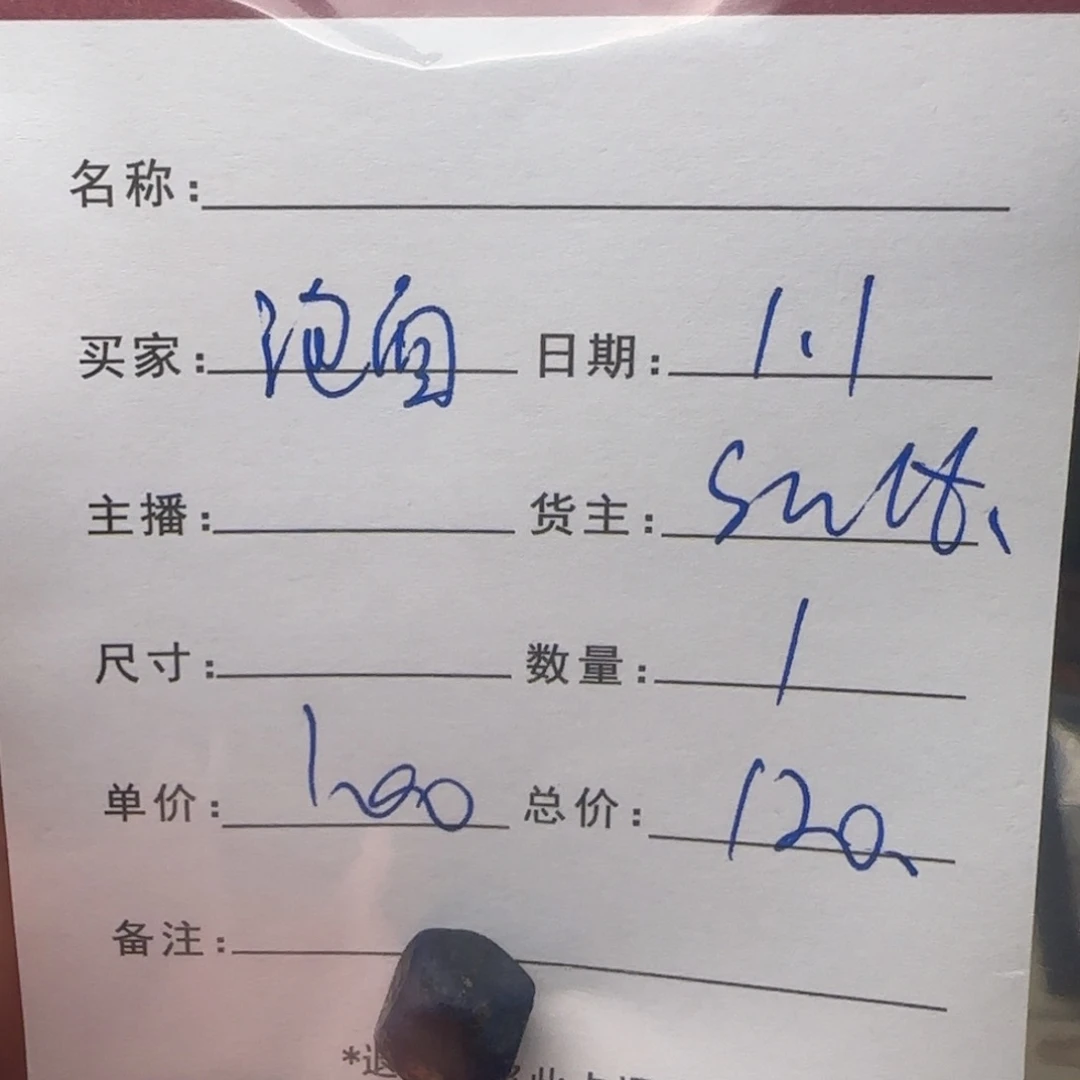 名称:
买家: 泡面 日期: 1.1
主播: 货主:
尺寸: 数量: 1
单价: 总价: 120
备注:
*退